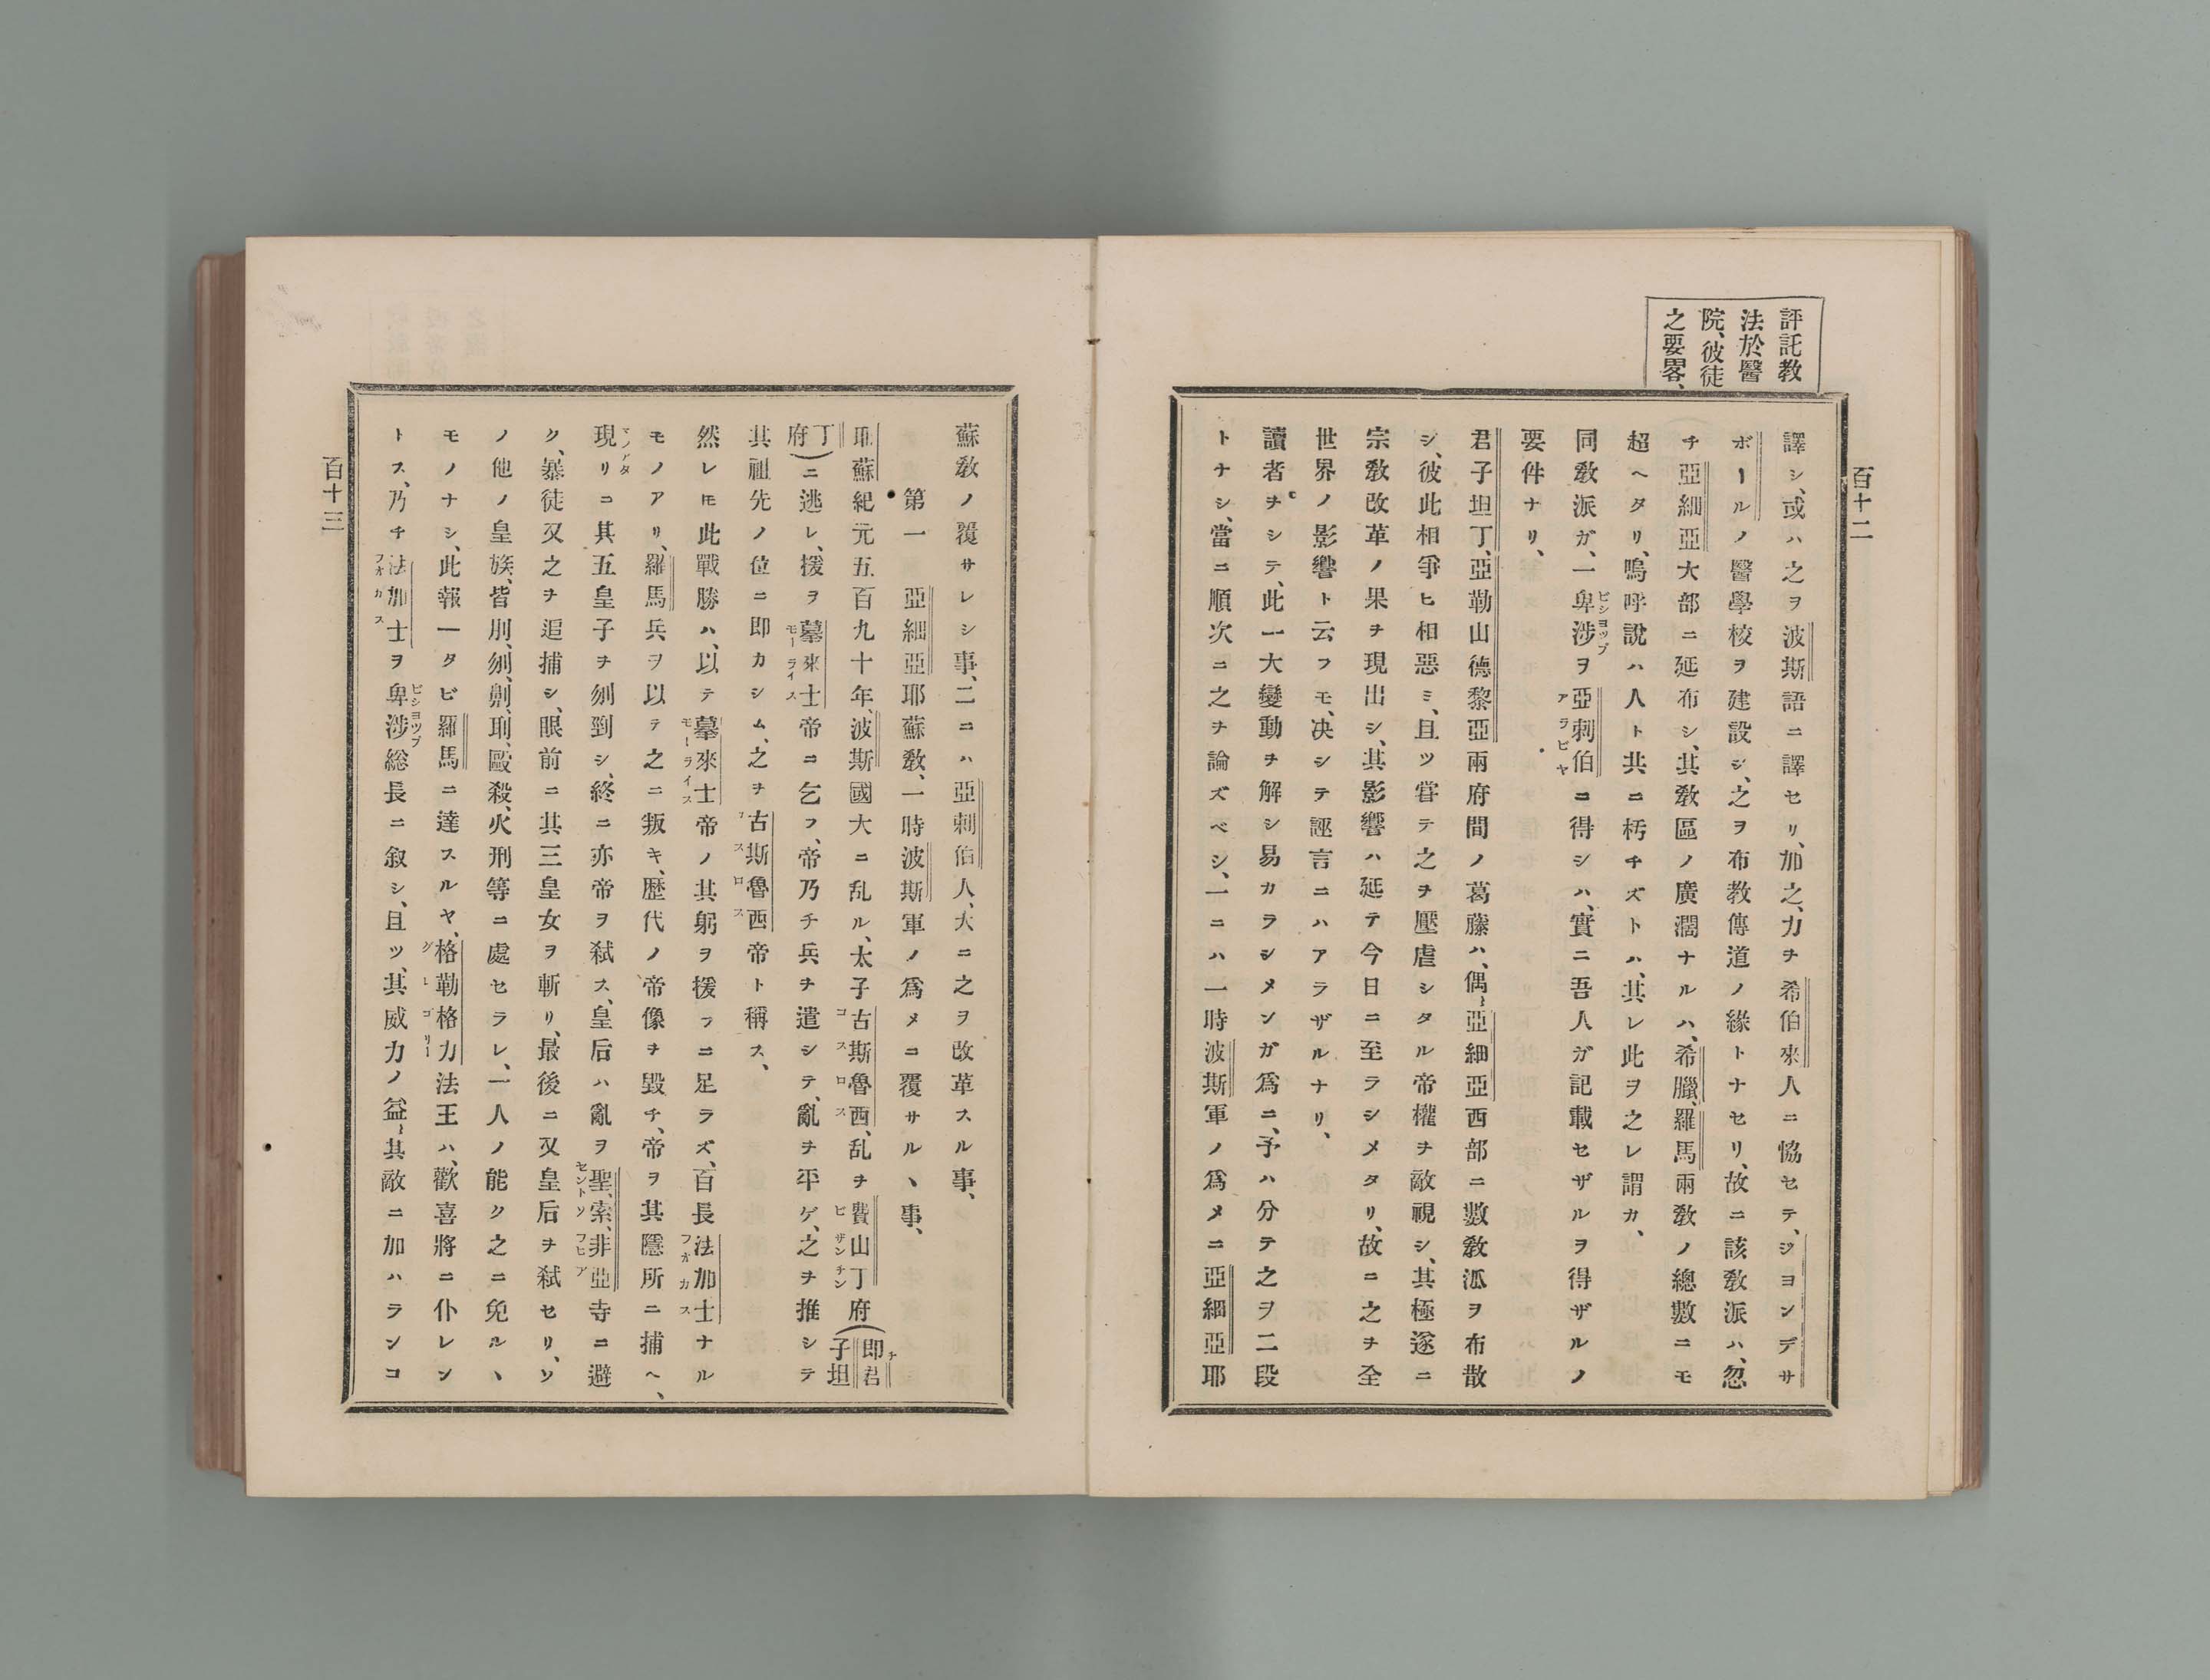 百十二
評託教
法於醫
院、彼徒
之要畧、
譯シ、或ハ之ヲ波斯語ニ譯セリ、加之、力チ希伯來人ニ恊セテ、ジヨンデサ
ボールノ醫學校ヲ建設シ、之ヲ布教傳道ノ緣トナセリ、故ニ該敎派ハ、忽
チ亞細亞大部ニ延布シ、其敎區ノ廣濶ナルハ、希臘、羅馬兩敎ノ總數ニモ
超ヘタリ、嗚呼說ハ人ト共ニ朽チズトハ、其レ此ヲ之レ謂カ、
同敎派ガ、一卑涉ヲ亞刺伯ニ得シハ、實ニ吾人ガ記載セザルヲ得ザルノ
ビシヨップ
アラビヤ
要件ナリ、
君子坦丁、亞勒山德黎亞兩府間ノ葛藤ハ、偶〻亞細亞西部ニ數敎派ヲ布散
シ、彼此相爭ヒ相惡ミ、且ツ甞テ之ヲ壓虐シタル帝權ヲ敵視シ、其極遂ニ
宗敎改革ノ果ヲ現出シ、其影響ハ延テ今日ニ至ラシメタリ、故ニ之ヲ全
世界ノ影響ト云フモ、决シテ誣言ニハアラザルナリ、
讀者ヲシテ、此一大變動ヲ解シ易カラシメンガ爲ニ、予ハ分テ之ヲ二段
トナシ、當ニ順次ニ之ヲ論ズベシ、一ニハ一時波斯軍ノ爲メニ亞細亞耶
蘇敎ノ覆サレシ事、二ニハ亞刺伯人、大ニ之ヲ改革スル事、
第一 亞細亞耶蘇敎、一時波斯軍ノ爲メニ覆サルヽ事、
耶蘇紀元五百九十年、波斯國大ニ乱ル、太子古斯魯西、乱ヲ費山丁府(即チ君子坦
コスロス
ビザンチン
丁府)ニ逃レ、援ヲ摹來士帝ニ乞フ、帝乃チ兵ヲ遣シテ、亂ヲ平ゲ、之ヲ推シテ
モーライス
其祖先ノ位ニ即カシム、之ヲ古斯魯西帝ト稱ス、
コスロス
然レモ此戰勝ハ、以テ摹來士帝ノ其躬ヲ援フニ足ラズ、百長法加士ナル
モーライス
フオカス
モノアリ、羅馬兵ヲ以テ之ニ叛キ、歷代ノ帝像ヲ毀チ、帝ヲ其隱所ニ捕ヘ、
現リニ其五皇子ヲ刎剄シ、終ニ亦帝ヲ弑ス、皇后ハ亂ヲ聖、索、非亞寺ニ避
マノアタ
セントソフヒア
ク、暴徒又之ヲ追捕シ、眼前ニ其三皇女ヲ斬リ、最後ニ又皇后ヲ弑セリ、ソ
ノ他ノ皇族、皆刖、刎、劓、刵、毆殺、火刑等ニ處セラレ、一人ノ能ク之ニ免ルヽ
モノナシ、此報一タビ羅馬ニ達スルヤ、格勒格力法王ハ、歡喜將ニ仆レン
グレゴリー
トス、乃チ法加士ヲ卑涉総長ニ叙シ、且ツ、其威力ノ益〻其敵ニ加ハランコ
フオカス
ビシヨップ
百十三